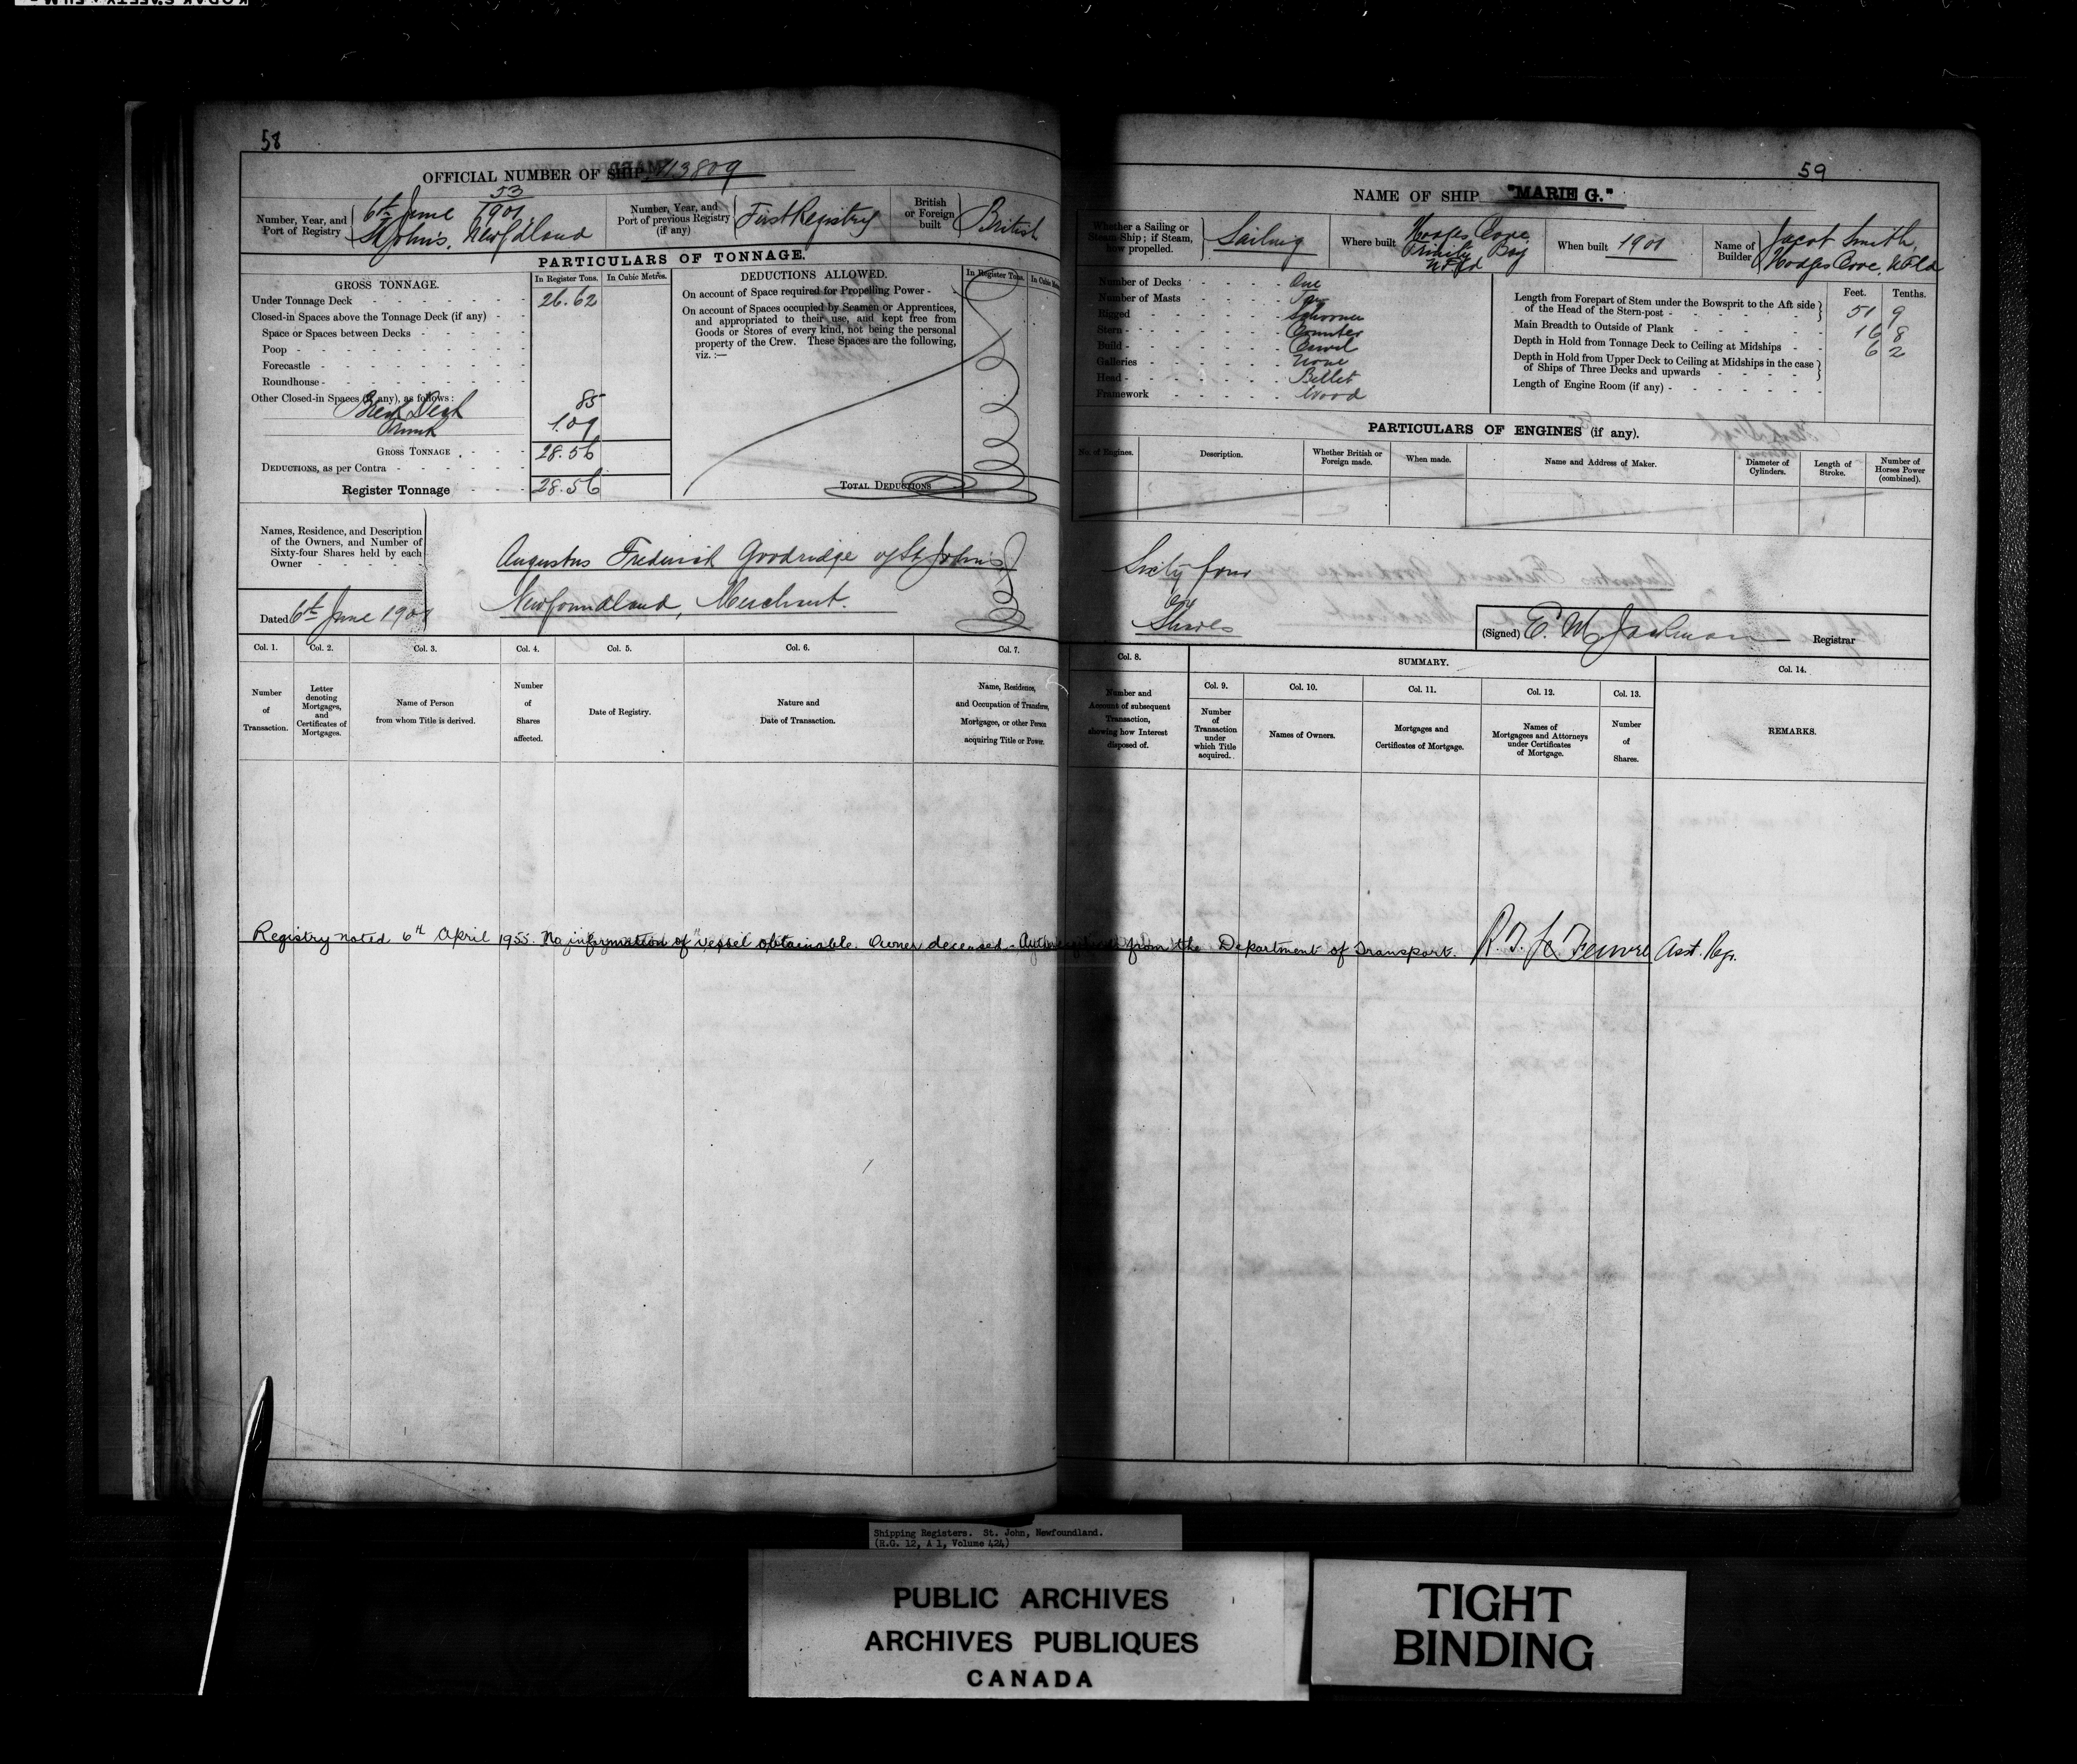 58
OFFICIAL NUMBER OF SHIP 113809
Number, Year, and Port of Registry
53
6th June 1901
St John's, Newfdland
Number, Year, and Port of previous Registry (if any)
First Registry
British or Foreign built
British
PARTICULARS OF TONNAGE.
GROSS TONNAGE.
In Register Tons.
In Cubic Metres.
Under Tonnage Deck 26.62
Closed-in Spaces above the Tonnage Deck (if any)
Space or Spaces between Decks
Poop
Forecastle
Roundhouse
Other Closed-in Spaces (if any), as follows:
Break Deck 85
Trunk 1.09
GROSS TONNAGE 28.56
DEDUCTIONS, as per Contra
Register Tonnage 28.56
DEDUCTIONS ALLOWED.
In Register Tons.
On account of Space required for Propelling Power
On account of Spaces occupied by Seamen or Apprentices,
and appropriated to their use, and kept free from
Goods or Stores of every kind, not being the personal
property of the Crew. These Spaces are the following,
viz. :—
TOTAL DEDUCTIONS
Names, Residence, and Description
of the Owners, and Number of
Sixty-four Shares held by each
Owner
Dated 6th June 1901
Augustus Frederick Goodridge of St John's
Newfoundland, Merchant.
Col. 1.
Number
of
Transaction.
Col. 2.
Letter
denoting
Mortgages,
and
Certificates of
Mortgages.
Col. 3.
Name of Person
from whom Title is derived.
Col. 4.
Number
of
Shares
affected.
Col. 5.
Date of Registry.
Col. 6.
Nature and
Date of Transaction.
Col. 7.
Name, Residence,
and Occupation of Transferee,
Mortgagee, or other Person
acquiring Title or Power.
59
NAME OF SHIP "MARIE G."
Whether a Sailing or
Steam Ship; if Steam,
how propelled.
Sailing
Where built
Hodges Cove
Trinity Bay
Nfld
When built 1901
Name of
Builder
Jacob Smith,
Hodges Cove, Nfld
Number of Decks One
Number of Masts Two
Rigged Schooner
Stern Counter
Build Carvel
Galleries None
Head Billet
Framework Wood
Feet. Tenths.
Length from Forepart of Stem under the Bowsprit to the Aft side
of the Head of the Stern-post 51 9
Main Breadth to Outside of Plank 16 8
Depth in Hold from Tonnage Deck to Ceiling at Midships 6 2
Depth in Hold from Upper Deck to Ceiling at Midships in the case
of Ships of Three Decks and upwards
Length of Engine Room (if any)
PARTICULARS OF ENGINES (if any).
No. of Engines.
Description.
Whether British or
Foreign made.
When made.
Name and Address of Maker.
Diameter of
Cylinders.
Length of
Stroke.
Number of
Horses Power
(combined).
Sixty four
Shares
(Signed) Registrar
Col. 8.
Number and
Account of subsequent
Transaction,
showing how Interest
disposed of.
SUMMARY.
Col. 9.
Number
of
Transaction
under
which Title
acquired.
Col. 10.
Names of Owners.
Col. 11.
Mortgages and
Certificates of Mortgage.
Col. 12.
Names of
Mortgagees and Attorneys
under Certificates
of Mortgage.
Col. 13.
Number
of
Shares.
Col. 14.
REMARKS.
Registry noted 6th April 1955. No information of vessel obtainable. Owner deceased. from the Department of Transport. Asst. Regr.
Shipping Registers. St. John, Newfoundland.
(R.G. 12, A 1, Volume 424)
PUBLIC ARCHIVES
ARCHIVES PUBLIQUES
CANADA
TIGHT
BINDING